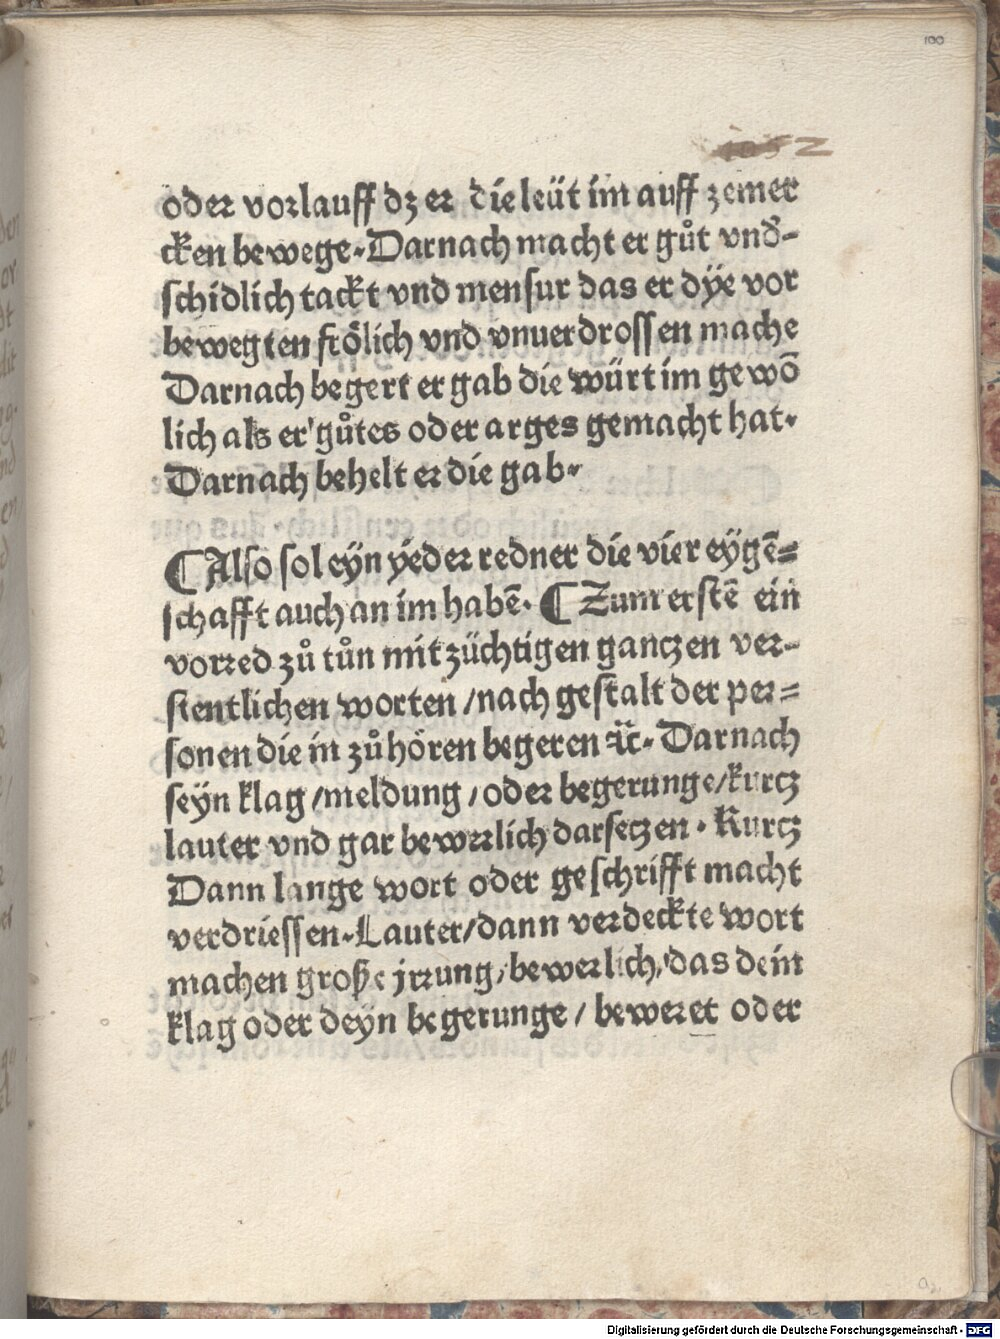 100
oder vorlauff dz er die leüt im auff zemer
cken bewege. Darnach macht er gůt vnd̕-
schidlich tackt vnd mensur das er dÿe vor
bewegten frölich vnd vnuerdrossen mache
Darnach begert er gab die würt im gewō
lich als er gůtes oder arges gemacht hat.
Darnach behelt er die gab.
¶ Also sol eÿn ÿeder redner die vier eÿgē=
schafft auch an im habē. ¶ Zum erstē ein
vorred zů tůn mit züchtigen gantzen ver-
stentlichen worten / nach gestalt der per=
sonen die in zůhören begeren ꝛc̈. Darnach
seÿn klag / meldung / oder begerunge / kurtz
lauter vnd gar bewerlich darsetzen. Kurtz
Dann lange wort oder geschrifft macht
verdriessen. Lauter / dann verdeckte wort
machen große jrrung / bewerlich / das dein
klag oder deÿn begerunge / beweret oder
Digitalisierung gefördert durch die Deutsche Forschungsgemeinschaft - DFG